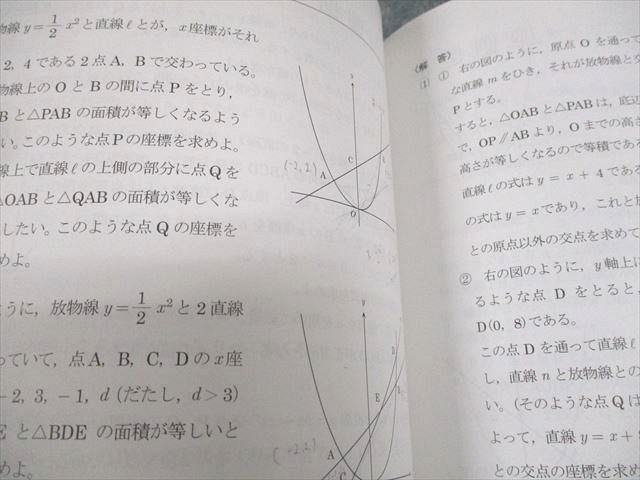 物線 y=1/2 x²と直線ℓとが，x座標がそれ
2, 4である2点A，Bで交わっている。
物線上のOとBの間に点Pをとり，
Bと△PABの面積が等しくなるよう
い。このような点Pの座標を求めよ。
線上で直線ℓの上側の部分に点Qを
△OABと△QABの面積が等しくな
したい。このような点Qの座標を
めよ。
ように，放物線 y=1/2 x²と2直線
っていて，点A，B，C，Dのx座
-2, 3, -1, d (だたし，d>3)
Eと△BDEの面積が等しいと
めよ。
(-2,2)
A
C
O
y
D
E
(-2,2)
A
C
〈解 答〉
(1) ① 右の図のように，原点Oを通って
な直線mをひき，それが放物線と交
Pとする。
すると，△OABと△PABは，底辺
で，OP∥ABより，Oまでの高さ
高さが等しくなるので等積である
直線ℓの式は y=x+4である
の式は y=xであり，これと放
との原点以外の交点を求めて
② 右の図のように，y軸上に
るような点Dをとると，
D(0, 8)である。
この点Dを通って直線ℓ
し，直線nと放物線との
い。(そのような点Qは
よって，直線 y=x+8
との交点の座標を求め